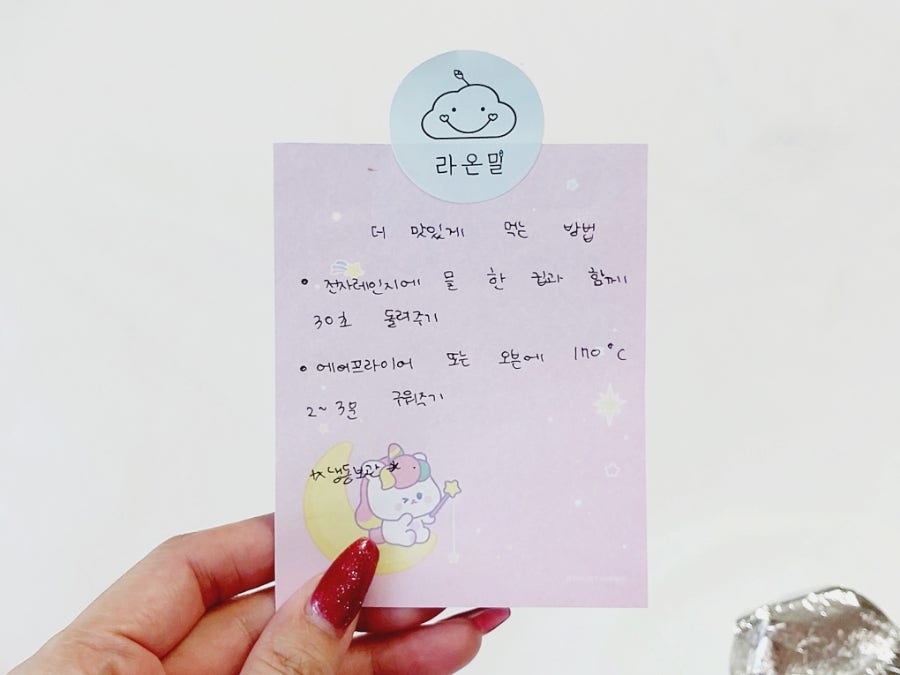 라온밀
더 맛있게 먹는 방법
• 전자레인지에 물 한 컵과 함께
30초 돌려주기
• 에어프라이어 또는 오븐에 170°C
2~3분 구워주기
* 냉동보관 *